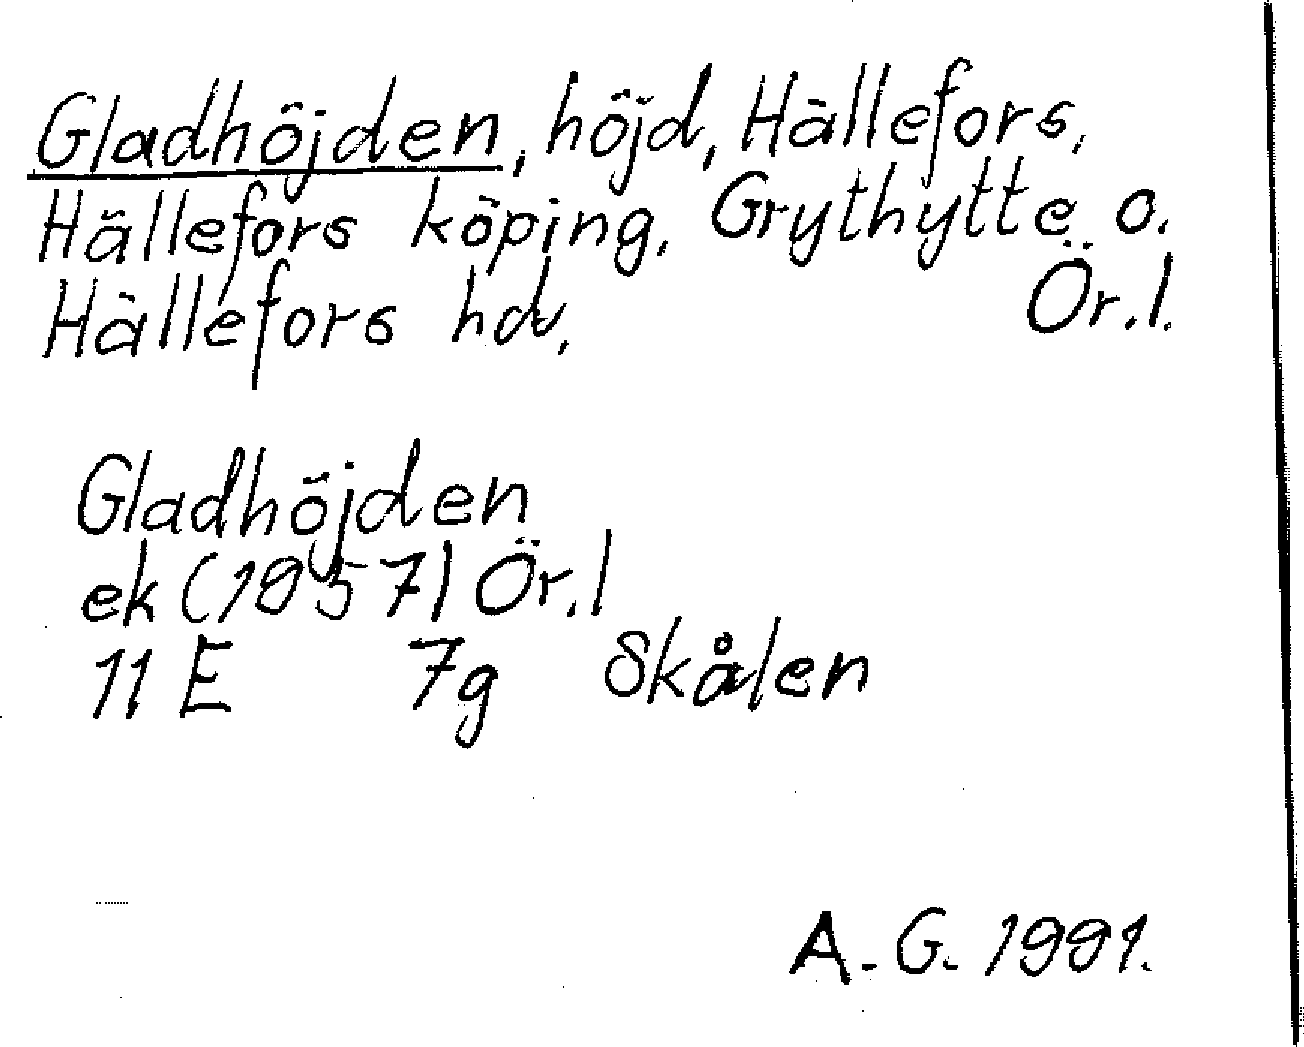 Gladhöjden, höjd, Hällefors,
Hällefors köping, Grythytte o.
Hällefors hd, Ör.l.
Gladhöjden
ek (1957) Ör.l
11 E 7g Skålen
A.G. 1991.